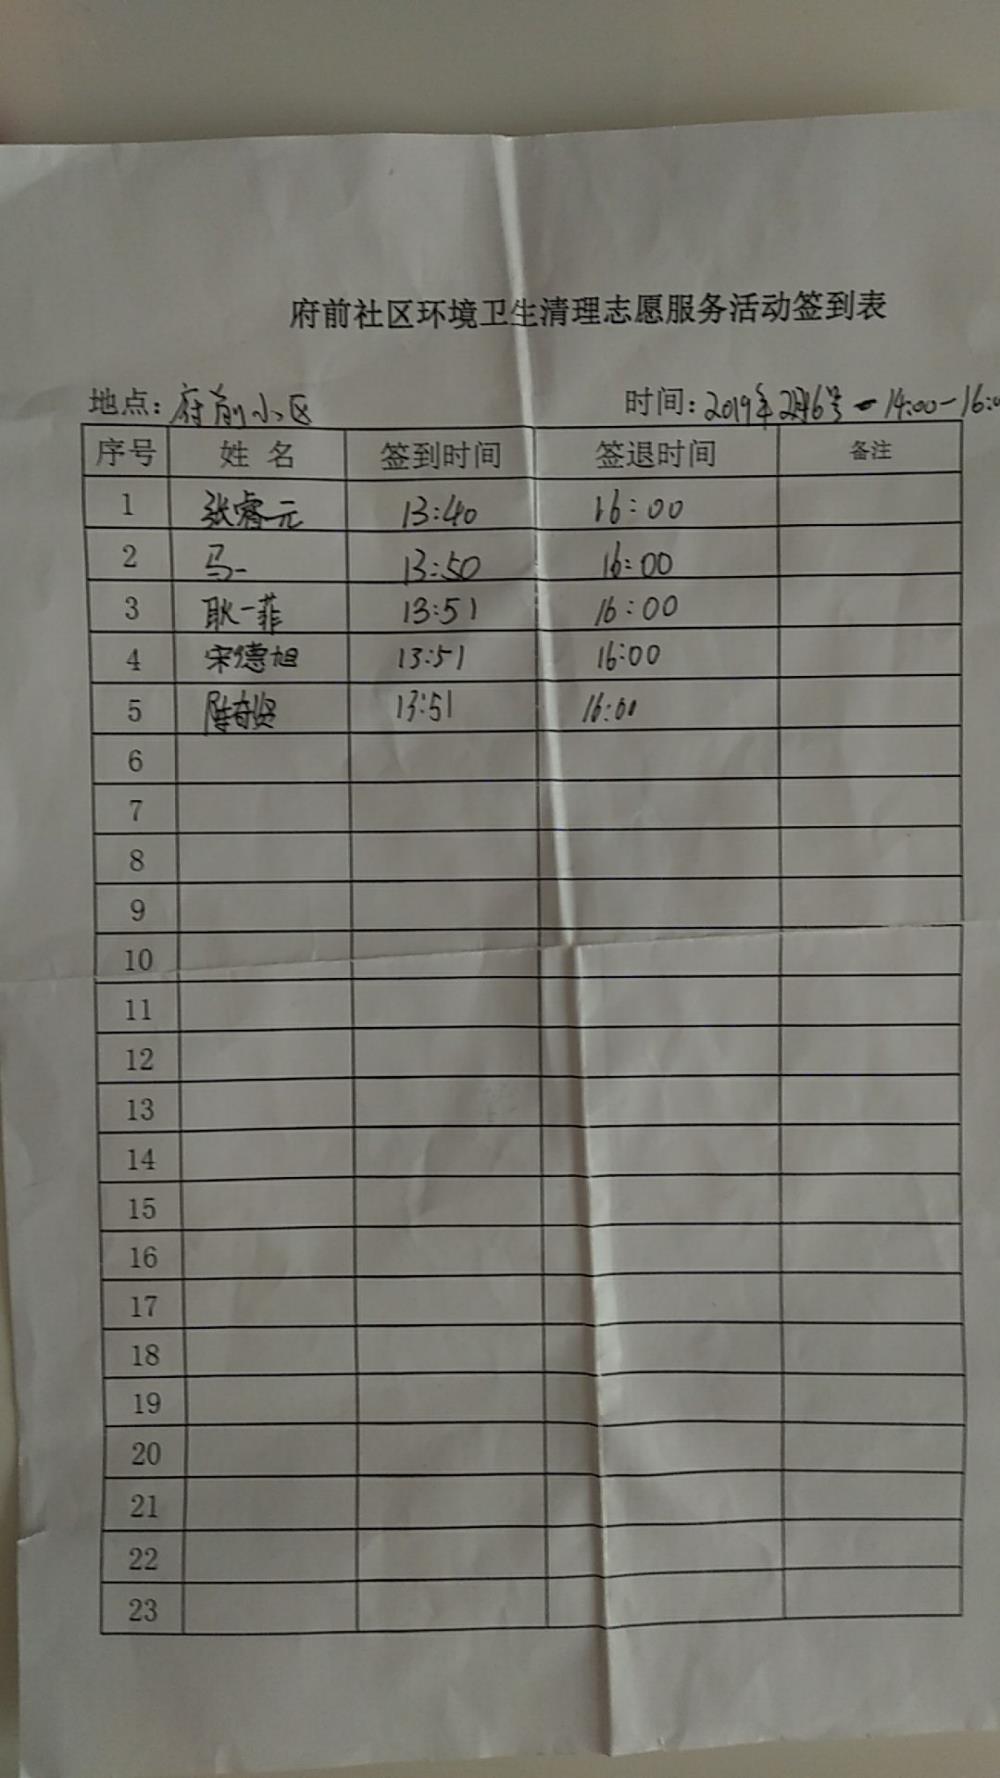 府前社区环境卫生清理志愿服务活动签到表
地点：府前小区 时间：2019年2月16号 - 14:00-16:0
序号 姓名 签到时间 签退时间 备注
1 张睿元 13:40 16:00
2 马一 13:50 16:00
3 耿一菲 13:51 16:00
4 宋德旭 13:51 16:00
5 陈贤 13:51 16:00
6
7
8
9
10
11
12
13
14
15
16
17
18
19
20
21
22
23